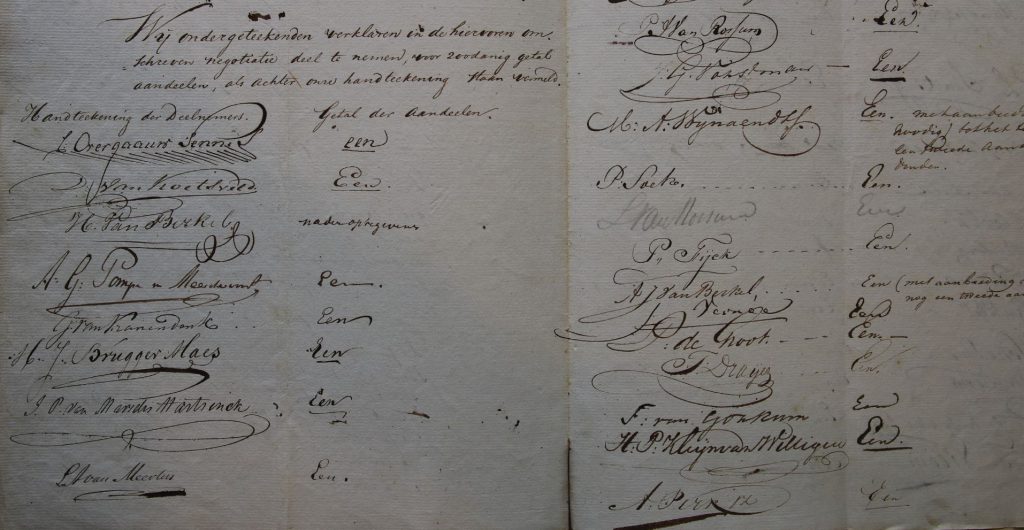 Wij ondergeteekenden verklaren in de hiervoren om-
schreven negotiatie deel te nemen, voor zoodanig getal
aandeelen, als achter onze handteekening staan vermeld.
Handteekening der Deelnemers. Getal der Aandeelen.
Overgaauw Pennis een
van Koetsveld Een.
H. van Berkel nader opgegeven
A: G: Pompe v Meerdervoort Een
G van Kranendonk Een
H. J. Brugger Maes Een
J. P. van Hartsinck Een
van Meerten Een.
P. Van Rossum Een
J. G. Een
M: A. Wijnaendts. Een. met aanbied
noodig) tot het
een tweede aan
P. Soek. Een.
L van Rossum Een
P. Fijck Een.
A J van Berkel, Een (met aanbieding
nog een tweede aan
Vernède Een
P. de Groot. Een
T. Draijer Een.
F: van Gorkum Een
H: P: Kluijn van Willigen Een.
A. Perk Een